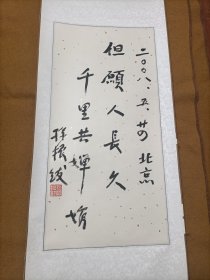 二〇〇八.五.廿 北京
但願人長久
千里共婵娟